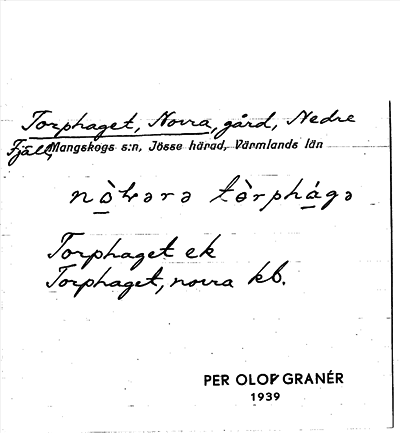 Torphaget, Norra, gård, Nedre
Fjäll, Mangskogs s:n, Jösse härad, Värmlands län
Torphaget ek
Torphaget, norra kb.
PER OLOF GRANÉR
1939